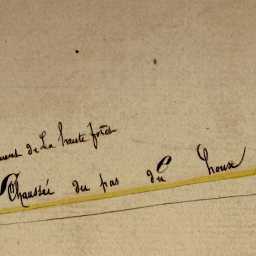 de La haute forêt
Chaussée du pas du houx